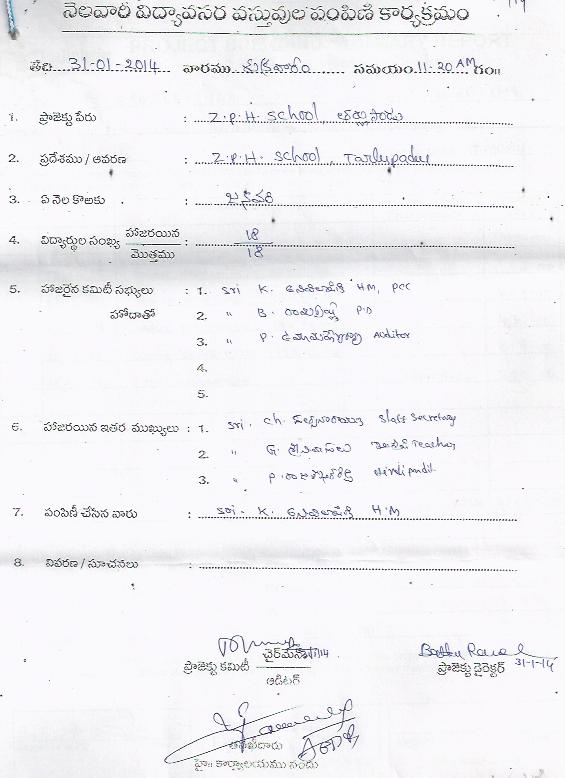 నెలవారీ విద్యావసర వస్తువుల పంపిణీ కార్యక్రమం
తేది 31-01-2014 వారము శుక్రవారం సమయం 11-20 AM గం॥
1. ప్రాజెక్టు పేరు : Z.P.H. School, తర్లుపాడు
2. ప్రదేశము / ఆవరణ : Z.P.H. School, Tarlupadu
3. ఏ నెల కొఱకు : జనవరి
4. విద్యార్థుల సంఖ్య హాజరయిన / మొత్తము : 18 / 18
5. హాజరైన కమిటీ సభ్యులు : 1. Sri K. HM, PCC
హోదాతో 2. " B. P.D
3. " P. ఉమామహేశ్వరరావు Auditor
4.
5.
6. హాజరయిన ఇతర ముఖ్యులు : 1. Sri. Ch. Staff Secretary
2. " G. శ్రీనివాసులు Teacher
3. " P. Hindi pandit
7. పంపిణీ చేసిన వారు : Sri. K. H.M
8. వివరణ / సూచనలు :
చైర్‌మేన్
ప్రాజెక్టు కమిటీ
ఆడిటర్
ప్రాజెక్టు డైరెక్టర్ 31-1-14
హై॥ కార్యాలయము నందు